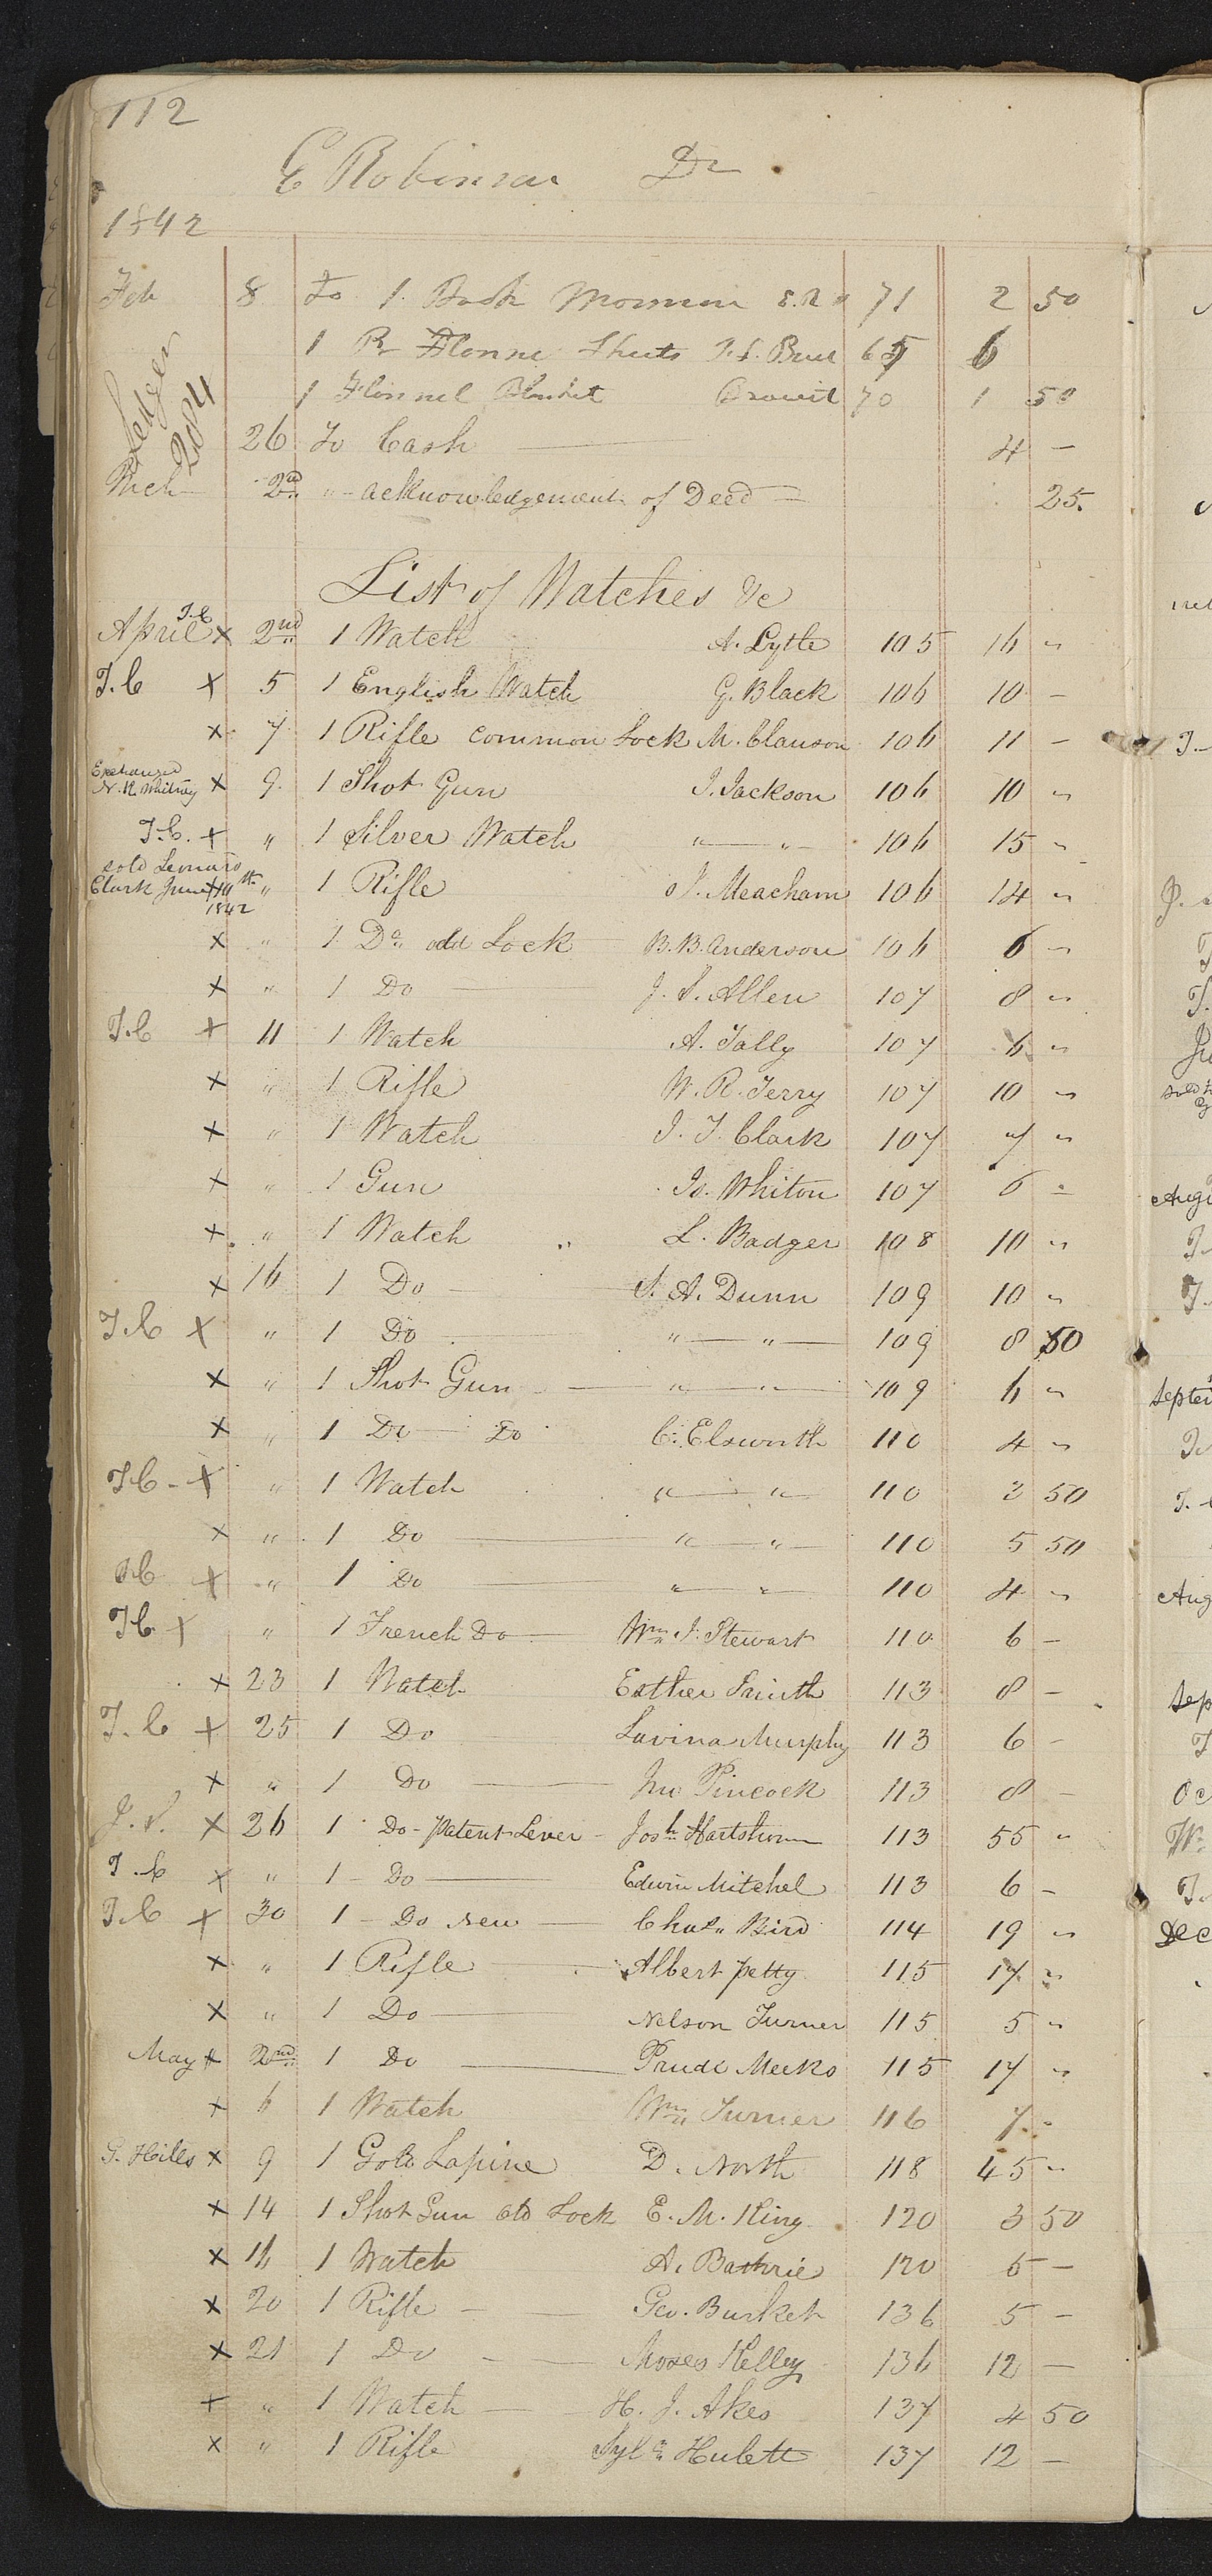 112
E Robinson Dr
1842
Feb 8 To 1. Book Mormon 71 2 50
1 Pr Flonne Sheets 65 6
1 Flonnel Blanket 70 1 50
Ledger 204
26 To Cash 4 –
Mch 2nd " acknowledgement of Deed 25.
List of Watches &c
April T.C x 2nd 1 Watch A. Lytle 105 16 "
T.C x 5 1 English Watch G. Black 106 10 –
x 7 1 Rifle common Lock M. Clauson 106 11 –
Exchanged N. K. Whitney x 9. 1 Shot Gun J. Jackson 106 10 "
T.C. x " 1 Silver Watch " — " — 106 15 "
sold Leonard Clark June 10th 1842 x " 1 Rifle J. Meacham 106 14 "
x " 1 Do old Lock B. B. Anderson 106 6 "
x " 1 Do — J. S. Allen 107 8 "
T.C x 11 1 Watch A. Tally 107 6 "
x " 1 Rifle W. R. Terry 107 10 "
x " 1 Watch J. T. Clark 107 7 "
x " 1 Gun Is. Whiton 107 6 "
x " 1 Watch L. Badger 108 10 "
x 16 1 Do — S. A. Dunn 109 10 "
T.C x " 1 Do — " — " — 109 8 50
x " 1 Shot Gun — " — " — 109 6 "
x " 1 Do — Do C. Elsworth 110 4 "
T.C - x " 1 Watch " — " 110 2 50
x " 1 Do — " — " 110 5 50
T.C x " 1 Do — " " 110 4 "
T.C x " 1 French Do — Wm J. Stewart 110 6 –
x 23 1 Watch Esther Smith 113 8 –
T.C x 25 1 Do Lavina Murphy 113 6 –
x " 1 Do — Jno Pincock 113 8 –
J. S. x 26 1 Do - Patent Lever - Josh Hartshorn 113 55 "
T.C x " 1 - Do — Edwin Mitchel 113 6 –
T.C x 30 1 - Do new — Chas. Bird 114 19 "
x " 1 Rifle — Albert Petty 115 17 "
x " 1 Do — Nelson Turner 115 5 "
May x 2nd 1 Do — Prude Meeks 115 17 "
x 6 1 Watch Wm Turner 116 7 "
G. Hills x 9 1 Gold Lapine D. North 118 45 "
x 14 1 Shot Gun old Lock E. M. King 120 3 50
x 16 1 Watch A. Bathrie 120 5 –
x 20 1 Rifle — Geo. Burket 136 5 –
x 21 1 Do — Moses Kelley 136 12 –
x " 1 Watch — H. J. Akes 137 4 50
x " 1 Rifle Sylr Hulett 137 12 –